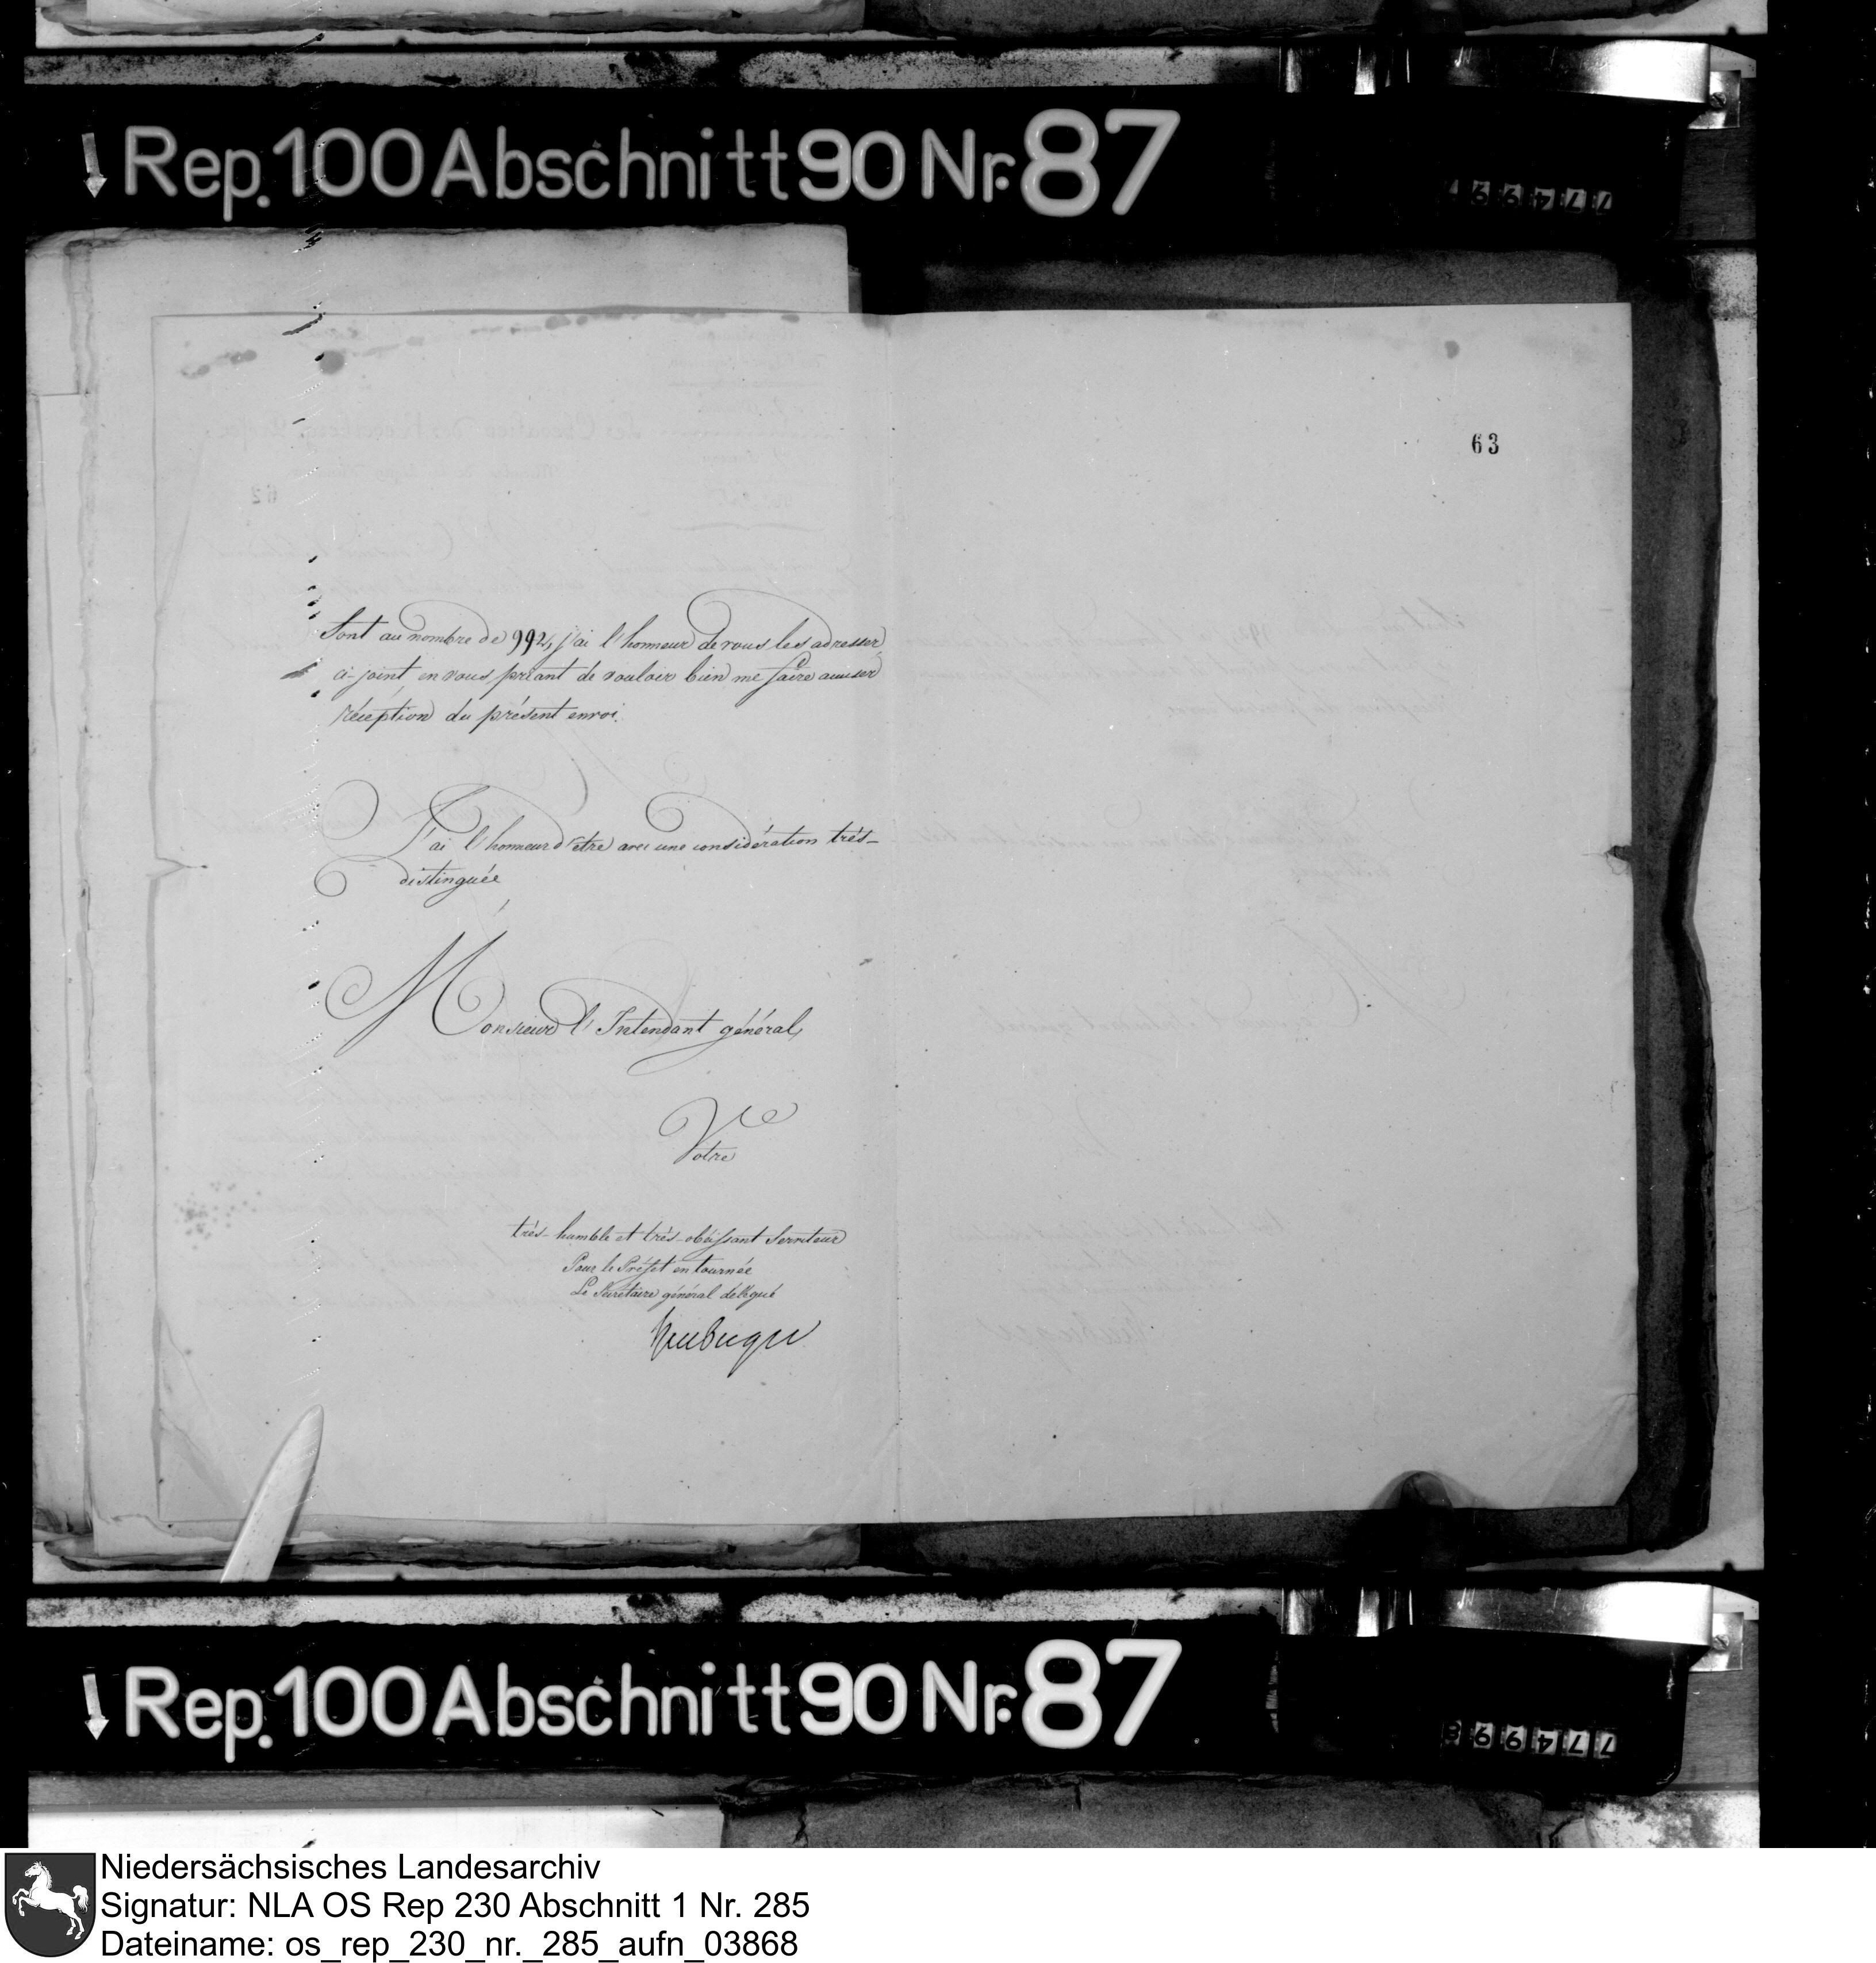 Rep. 100 Abschnitt 90 Nr. 87
63
Sont au nombre de 992, j'ai l'honneur de vous les adresser
ci-joint en vous priant de vouloir bien me faire accuser
réception du présent envoi.
J'ai l'honneur d'être avec une considération très-
distinguée
Monsieur l'Intendant général,
Votre
très-humble et très-obéissant Serviteur
Pour le Préfet en tournée
Le Secrétaire général délégué
Rep. 100 Abschnitt 90 Nr. 87
774998
Niedersächsisches Landesarchiv
Signatur: NLA OS Rep 230 Abschnitt 1 Nr. 285
Dateiname: os_rep_230_nr._285_aufn_03868